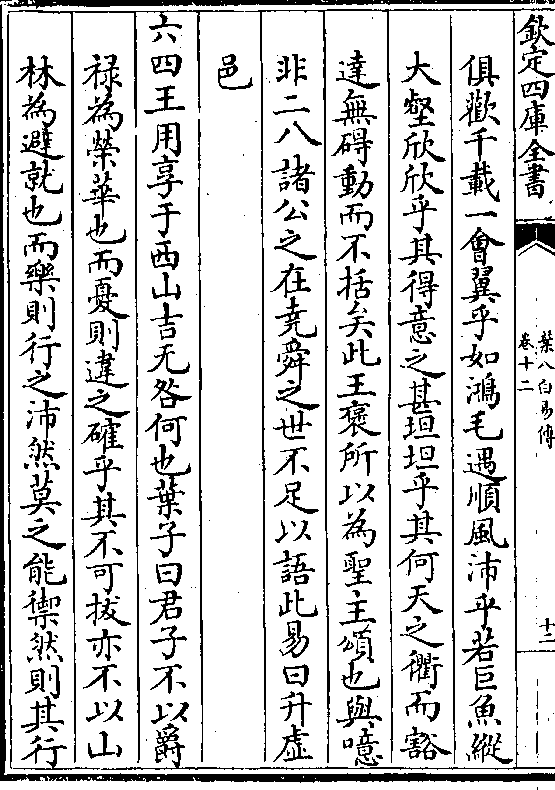 欽定四庫全書
葉八白易傳
卷十二
十二
俱歡千載一會翼乎如鴻毛遇順風沛乎若巨魚縱
大壑欣欣乎其得意之甚坦坦乎其何天之衢而豁
達無碍動而不括矣此王褒所以為聖主頌也與噫
非二八諸公之在堯舜之世不足以語此易曰升虛
邑
六四王用享于西山吉无咎何也葉子曰君子不以爵
禄為榮華也而憂則違之確乎其不可拔亦不以山
林為避就也而樂則行之沛然莫之能禦然則其行